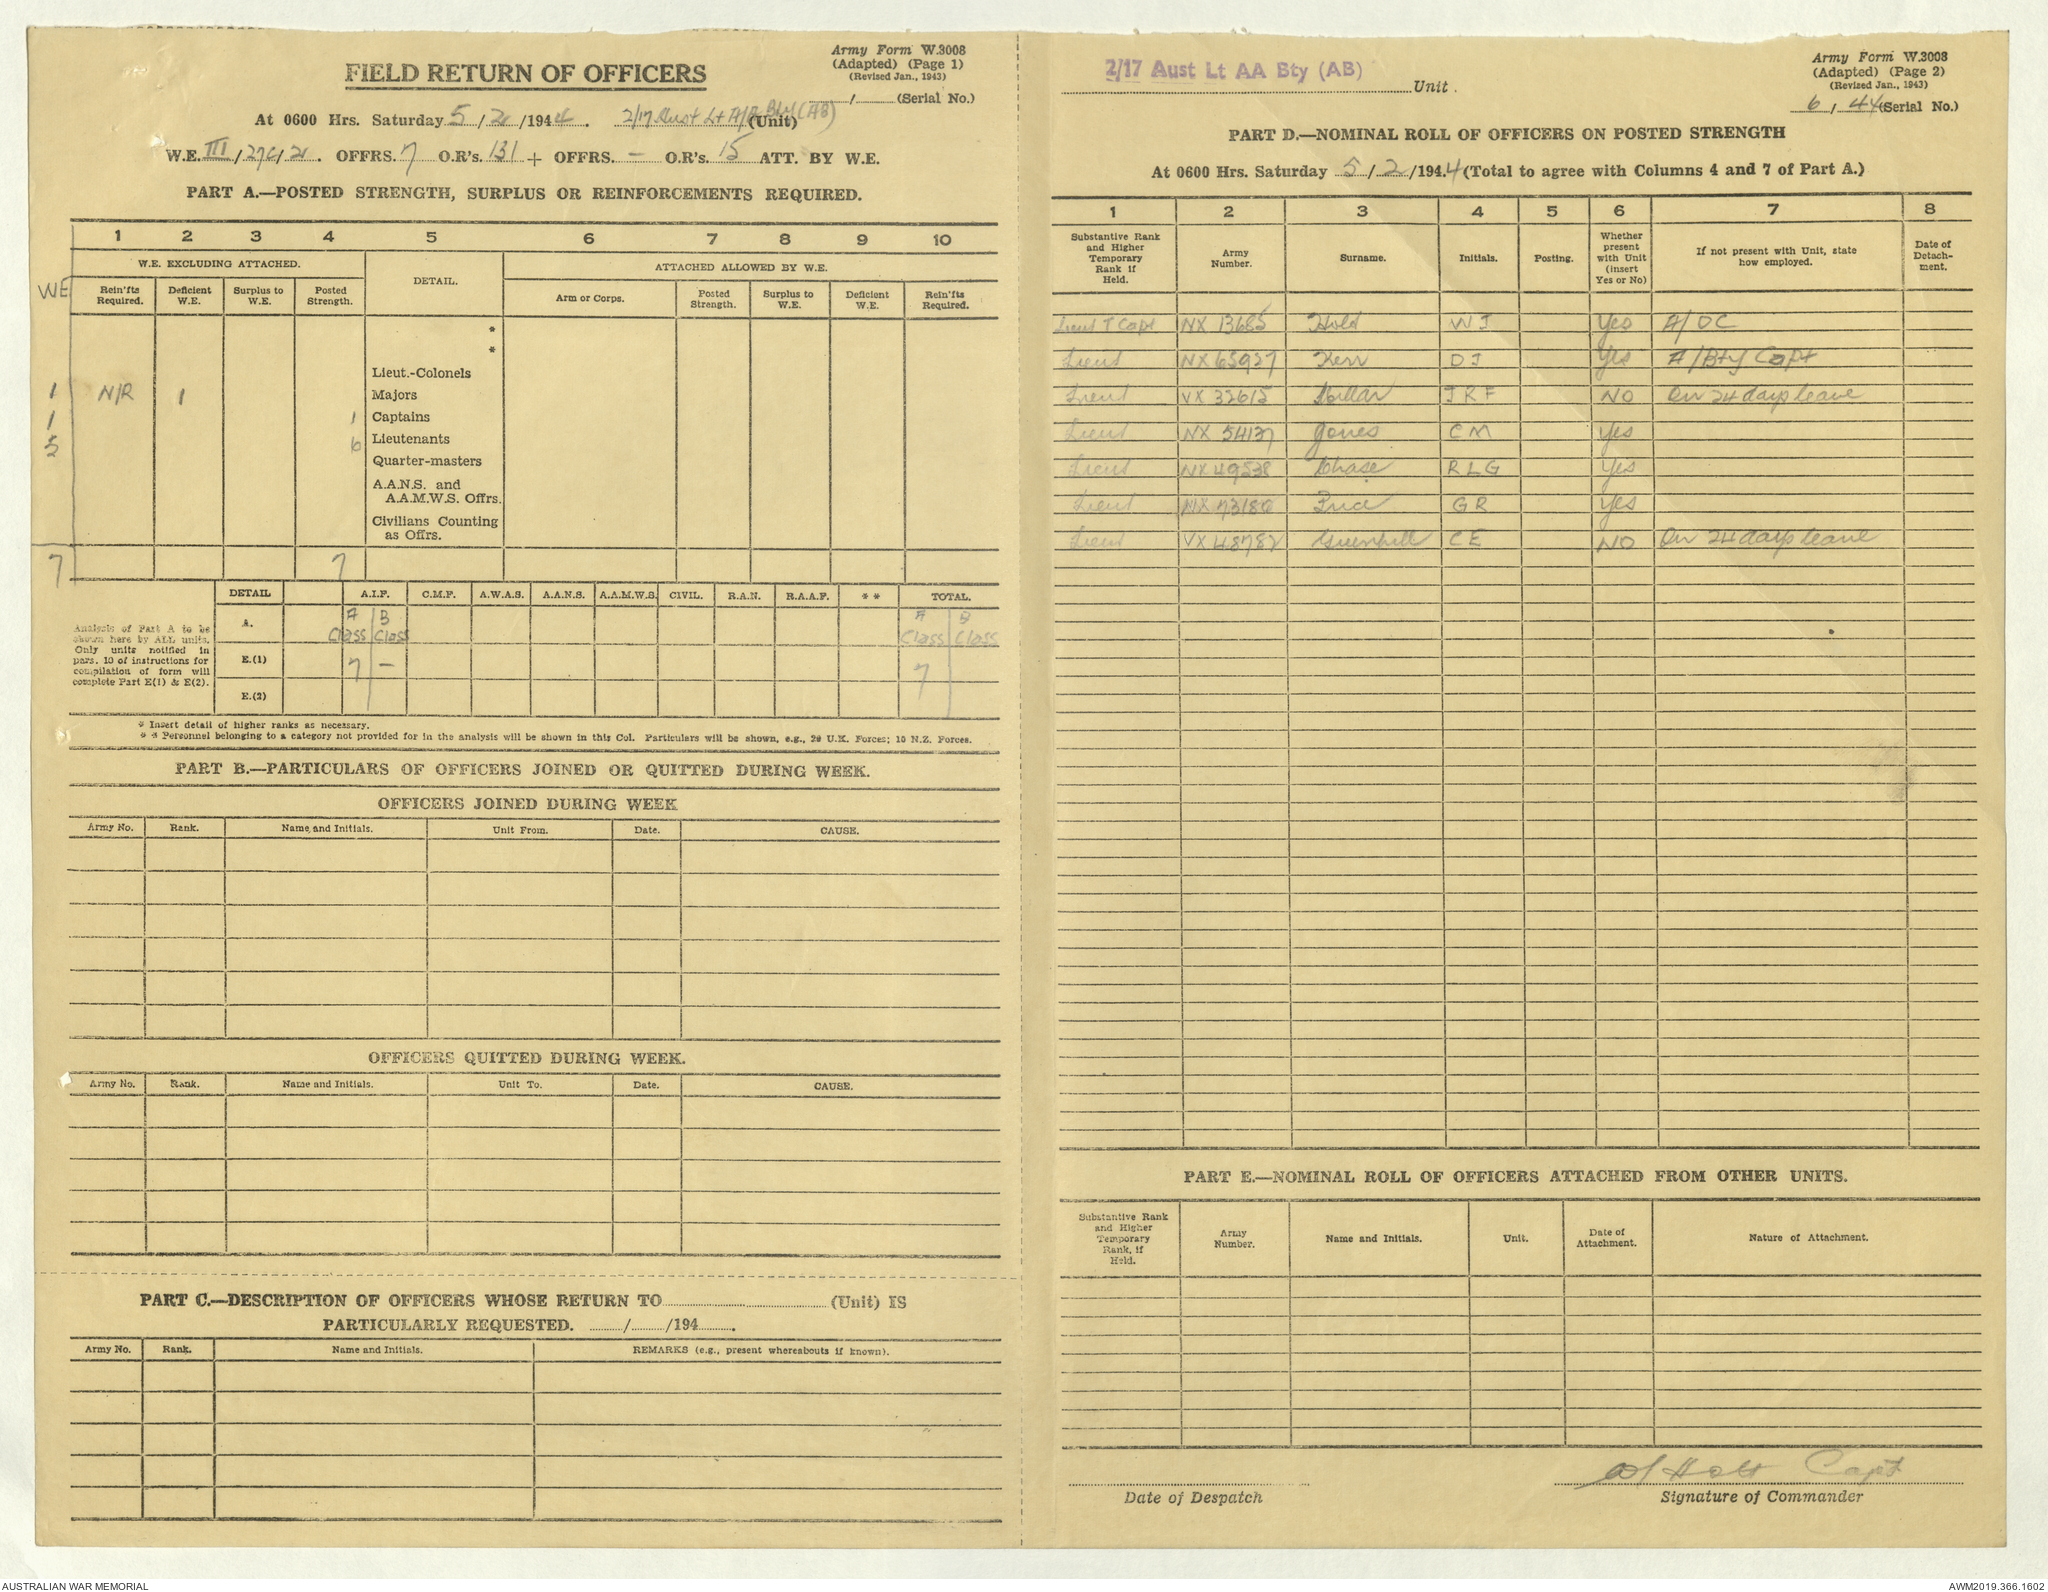 Army Form W.3008
(Adapted) (Page 1)
(Revised Jan., 1943)
FIELD RETURN OF OFFICERS
/ (Serial No.)
At 0600 Hrs. Saturday 5/2/1944. 2/17 Aust Lt A/A Bty (AB) (Unit)
W.E. III/27C/2. OFFRS. 7 O.R's. 131 + OFFRS. - O.R's. 15 ATT. BY W.E.
PART A.—POSTED STRENGTH, SURPLUS OR REINFORCEMENTS REQUIRED.
1 2 3 4 5 6 7 8 9 10
W.E. EXCLUDING ATTACHED. DETAIL. ATTACHED ALLOWED BY W.E.
WE Rein'fts Required. Deficient W.E. Surplus to W.E. Posted Strength. Arm or Corps. Posted Strength. Surplus to W.E. Deficient W.E. Rein'fts Required.
*
*
Lieut.-Colonels
1 N/R 1 Majors
1 1 Captains
5 6 Lieutenants
Quarter-masters
A.A.N.S. and
A.A.M.W.S. Offrs.
Civilians Counting
as Offrs.
7 7
DETAIL A.I.F. C.M.F. A.W.A.S. A.A.N.S. A.A.M.W.S. CIVIL. R.A.N. R.A.A.F. ** TOTAL.
Analysis of Part A to be shown here by ALL units. Only units notified in pars. 10 of instructions for compilation of form will complete Part E(1) & E(2).
A. A Class B Class A Class B Class
E.(1) 7 - 7
E.(2)
* Insert detail of higher ranks as necessary.
** Personnel belonging to a category not provided for in the analysis will be shown in this Col. Particulars will be shown, e.g., 20 U.K. Forces; 10 N.Z. Forces.
PART B.—PARTICULARS OF OFFICERS JOINED OR QUITTED DURING WEEK.
OFFICERS JOINED DURING WEEK
Army No. Rank. Name and Initials. Unit From. Date. CAUSE.
OFFICERS QUITTED DURING WEEK.
Army No. Rank. Name and Initials. Unit To. Date. CAUSE.
PART C.—DESCRIPTION OF OFFICERS WHOSE RETURN TO (Unit) IS
PARTICULARLY REQUESTED. / /194 .
Army No. Rank. Name and Initials. REMARKS (e.g., present whereabouts if known).
Army Form W.3008
(Adapted) (Page 2)
(Revised Jan., 1943)
2/17 Aust Lt AA Bty (AB) Unit.
6/44 (Serial No.)
PART D.—NOMINAL ROLL OF OFFICERS ON POSTED STRENGTH
At 0600 Hrs. Saturday 5/2/1944 (Total to agree with Columns 4 and 7 of Part A.)
1 2 3 4 5 6 7 8
Substantive Rank and Higher Temporary Rank if Held. Army Number. Surname. Initials. Posting. Whether present with Unit (insert Yes or No) If not present with Unit, state how employed. Date of Detachment.
Lieut T Capt NX 13685 WJ Yes A/OC
Lieut NX 65927 Kerr DJ Yes A/Bty Capt
Lieut VX 32615 JRF NO On 24 days leave
Lieut NX 54137 Jones CM Yes
Lieut NX 49538 Chase RLG Yes
Lieut NX 73186 Price GR Yes
Lieut VX 48782 Greenhill CE NO On 24 days leave
PART E.—NOMINAL ROLL OF OFFICERS ATTACHED FROM OTHER UNITS.
Substantive Rank and Higher Temporary Rank, if Held. Army Number. Name and Initials. Unit. Date of Attachment. Nature of Attachment.
WJ Holt Capt
Date of Despatch Signature of Commander
AUSTRALIAN WAR MEMORIAL AWM2019.366.1602